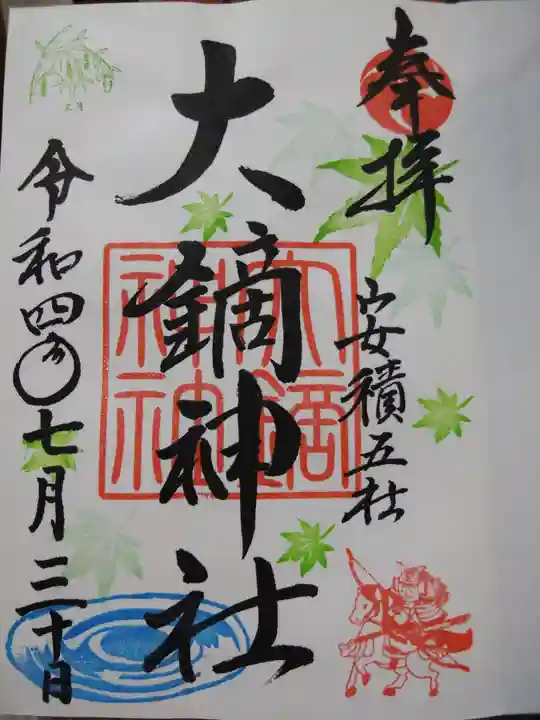 奉拝
安積五社
大鏑神社
大鏑
神社
令和四年七月三十日